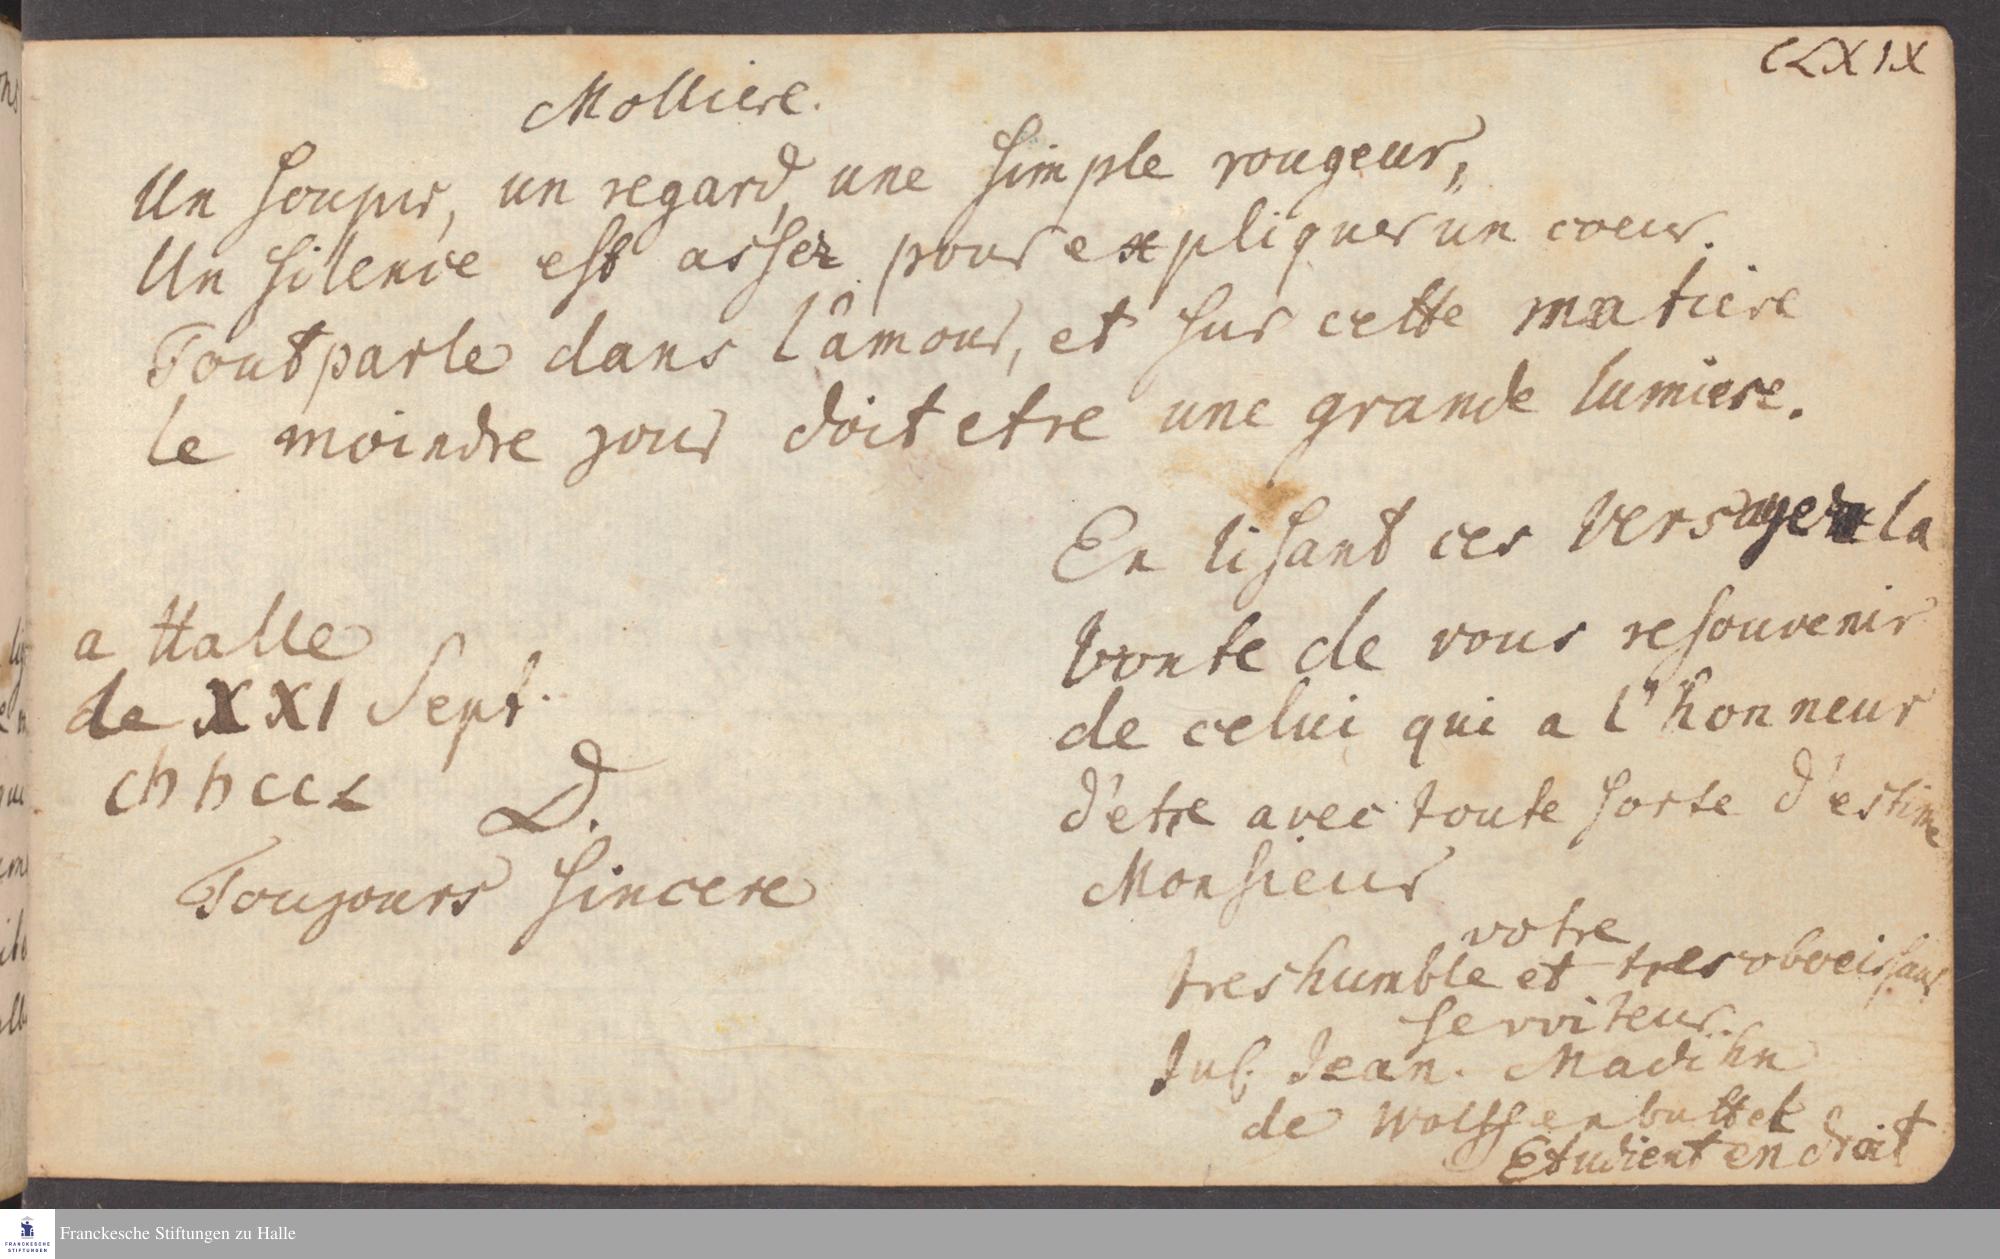 CLXIX
Molliere.
Un soupir, un regard, une simple rougeur,
Un silence est assez pour expliquer un coeur.
Tout parle dans l'âmour, et sur cette matiere
le moindre jour doit etre une grande lumiere.
En lisant ces vers ayez la
bonte de vous resouvenir
de celui qui a l'honneur
d'etre avec toute sorte d'estime
Monsieur
votre
tres humble et tres oboeissant
serviteur.
Jul. Jean. Madihn
de Wolffenbuttel
Etudient en droit
a Halle
de XXI Sept.
D.
Toujours sincere
Franckesche Stiftungen zu Halle
FRANCKESCHE
STIFTUNGEN